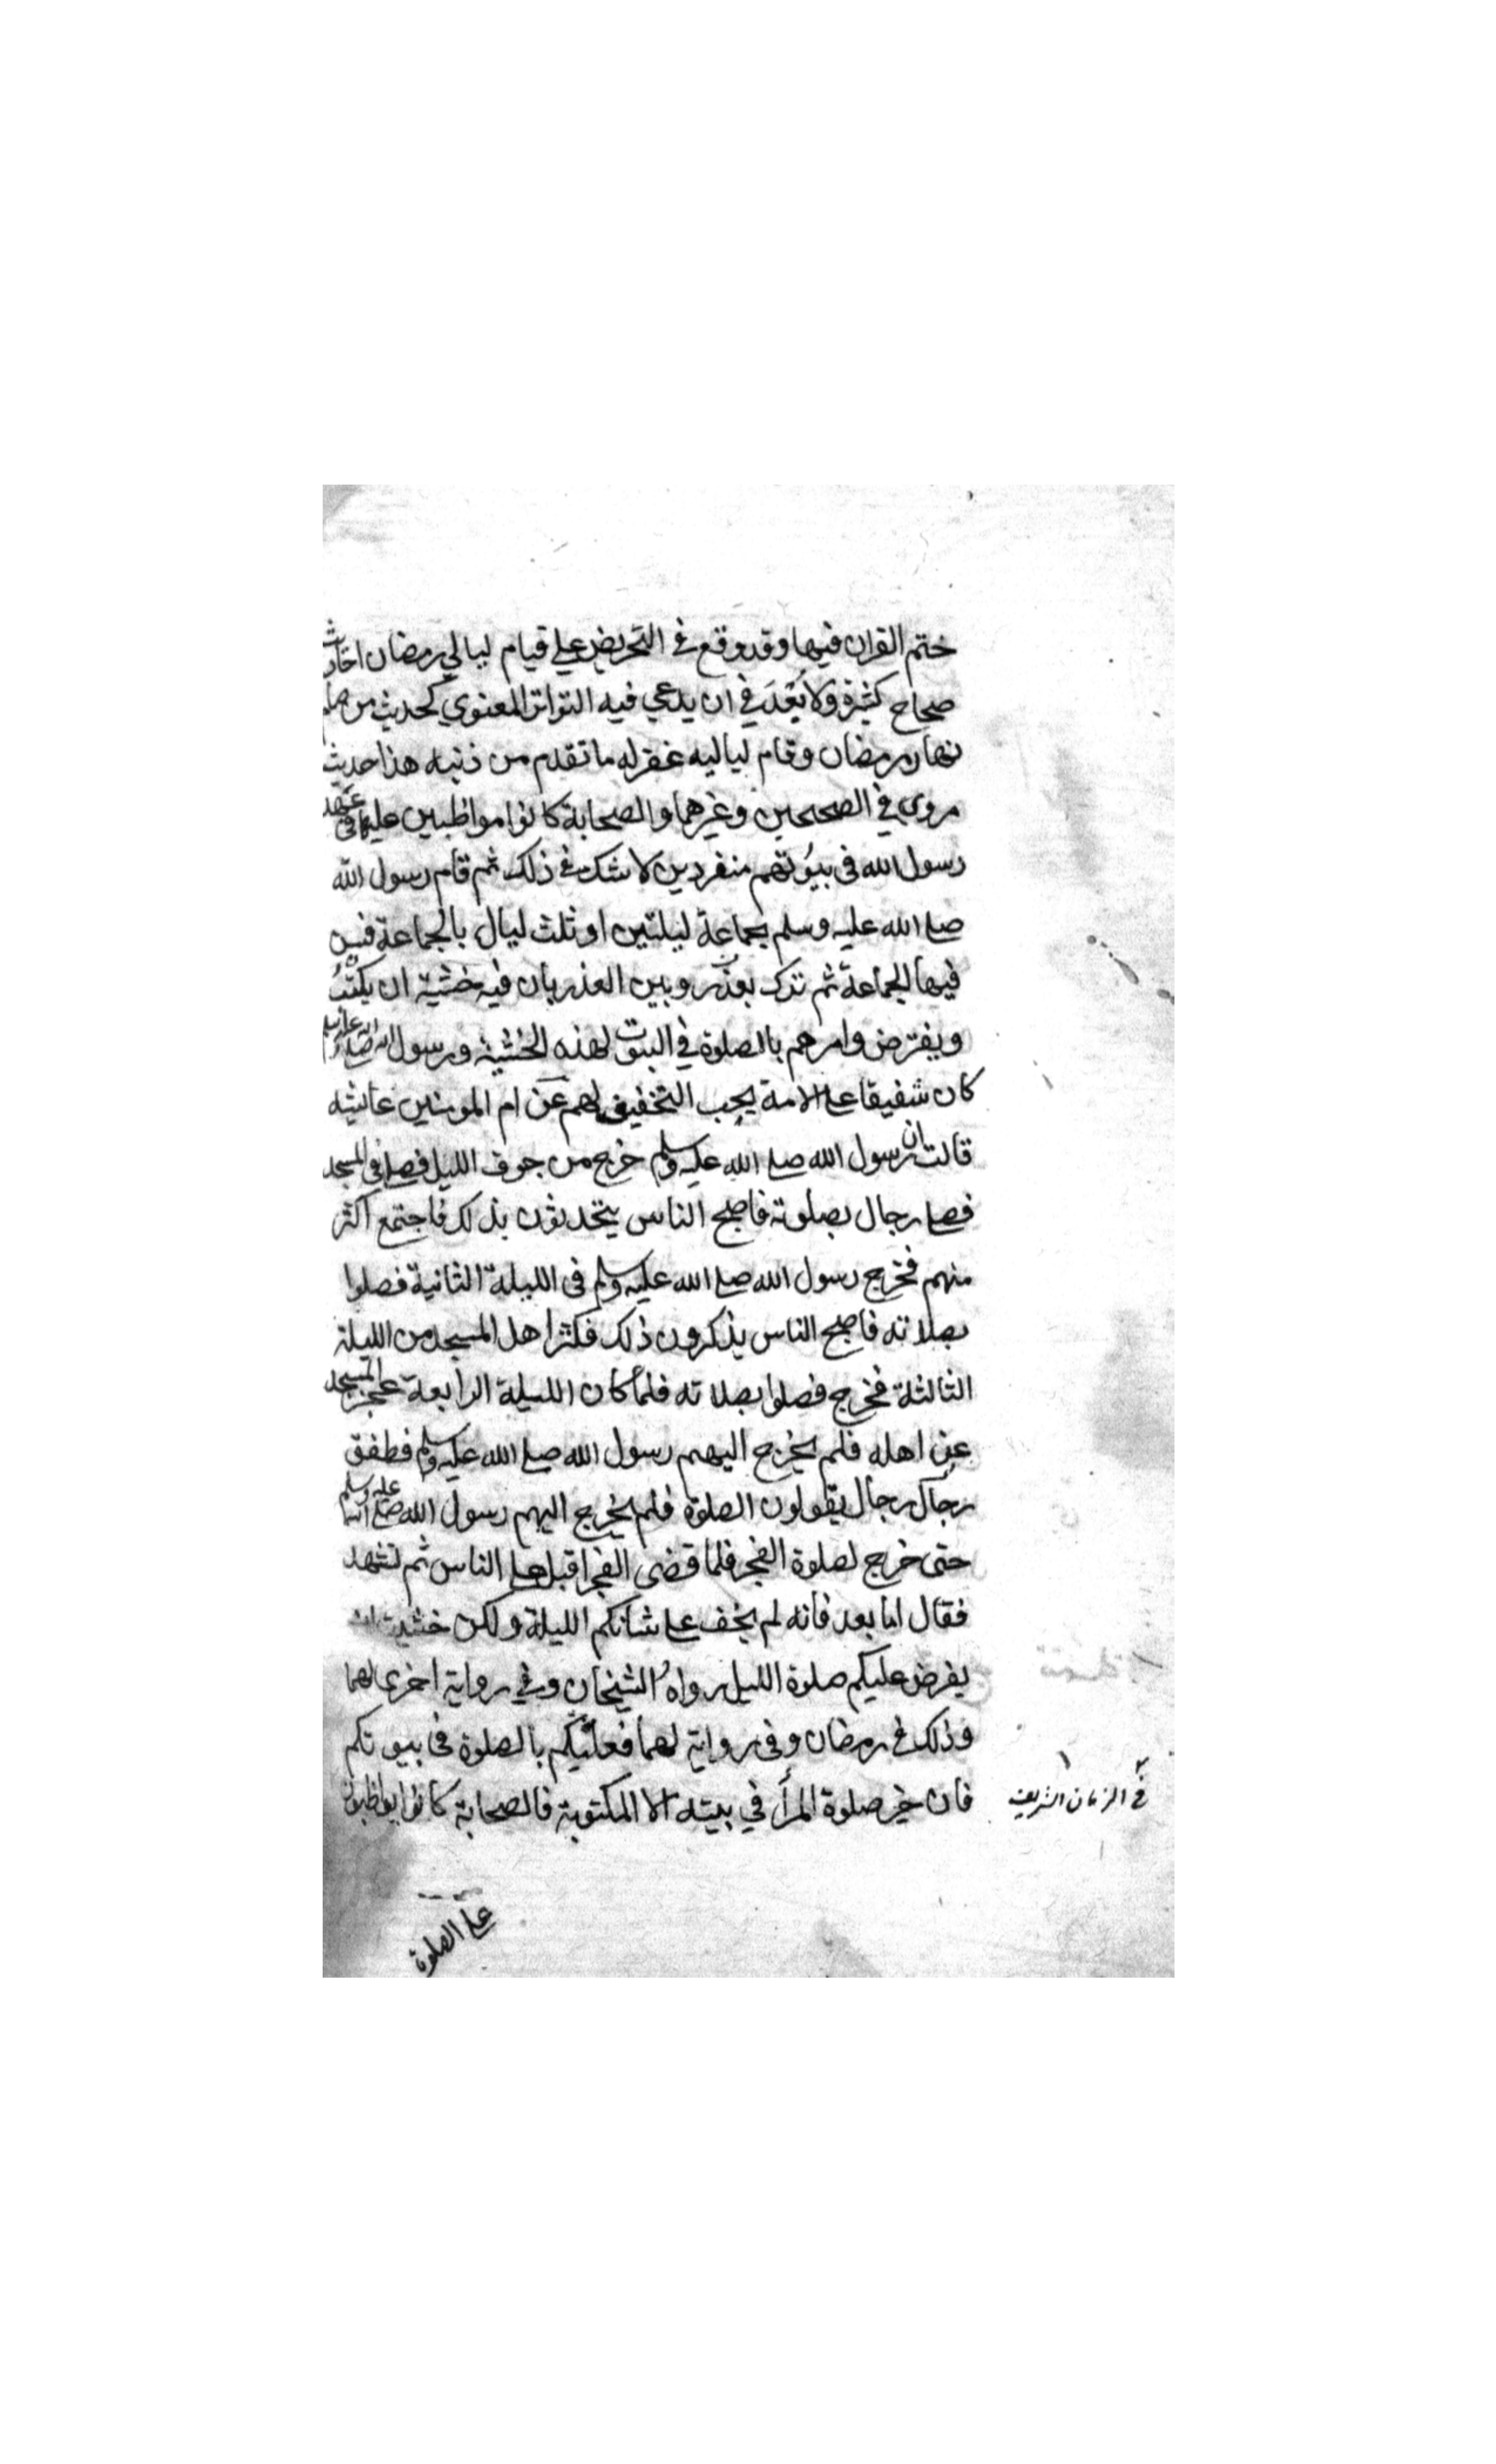 ختم القران فيها وقد وقع في التحريض علي قيام ليالي رمضان احاديث
صحاح كثيرة ولا يَبْعُد في ان يدعي فيه التواتر المعنوي كحديث من صام
نهار رمضان وقام لياليه غفر له ما تقدم من ذنبه هذا حديث
مروي في الصحيحين وغيرهما والصحابة كانوا مواظبين عليها في عهد
رسول الله فى بيُوتهم منفردين لا شك في ذلك ثم قام رسول الله
صلے الله عليه وسلم بجماعة ليلتين او ثلث ليال بالجماعة فبين
فيها الجماعة ثم ترك بعذر وبين العذر بان فيه خشية ان يكتبُ
ويفترض وامرهم بالصلوة في البيوت لهذه الخشية ورسول الله صلے الله عليه وسلم
كان شفيقا علے الامة يحب التخفيف لهم عن ام المومنين عائشه
قالت ان رسول الله صلے الله عليه وسلم خرج من جوف الليل فصلے في المسجد
فصلے رجال بصلوته فاصبح الناس يتحدثون بذلك فاجتمع اكثر
منهم فخرج رسول الله صلے الله عليه وسلم فى الليلة الثانية فصلوا
بصلاته فاصبح الناس يذكرون ذلك فكثر اهل المسجد من الليلة
الثالثة فخرج فصلوا بصلاته فلما كان الليلة الرابعة عجز المسجد
عن اهله فلم يخرج اليهم رسول الله صلے الله عليه وسلم فطفق
رجال رجال يقولون الصلوة فلم يخرج اليهم رسول الله صلے الله عليه وسلم
حتى خرج لصلوة الفجر فلما قضى الفجر اقبل علے الناس ثم تشهد
فقال اما بعد فانه لم يخف علے شانكم الليلة ولكن خشيت ان
يفرض عليكم صلوة الليل رواهُ الشيخان وفي رواية اخرى لهما
وذلك في رمضان وفى رواية لهما فعليكم بالصلوة فى بيوتكم
فان خير صلوة المرأ في بيته الا المكتوبة فالصحابة كانوا يواظبون
في الزمان الشريف
علے الصلوة